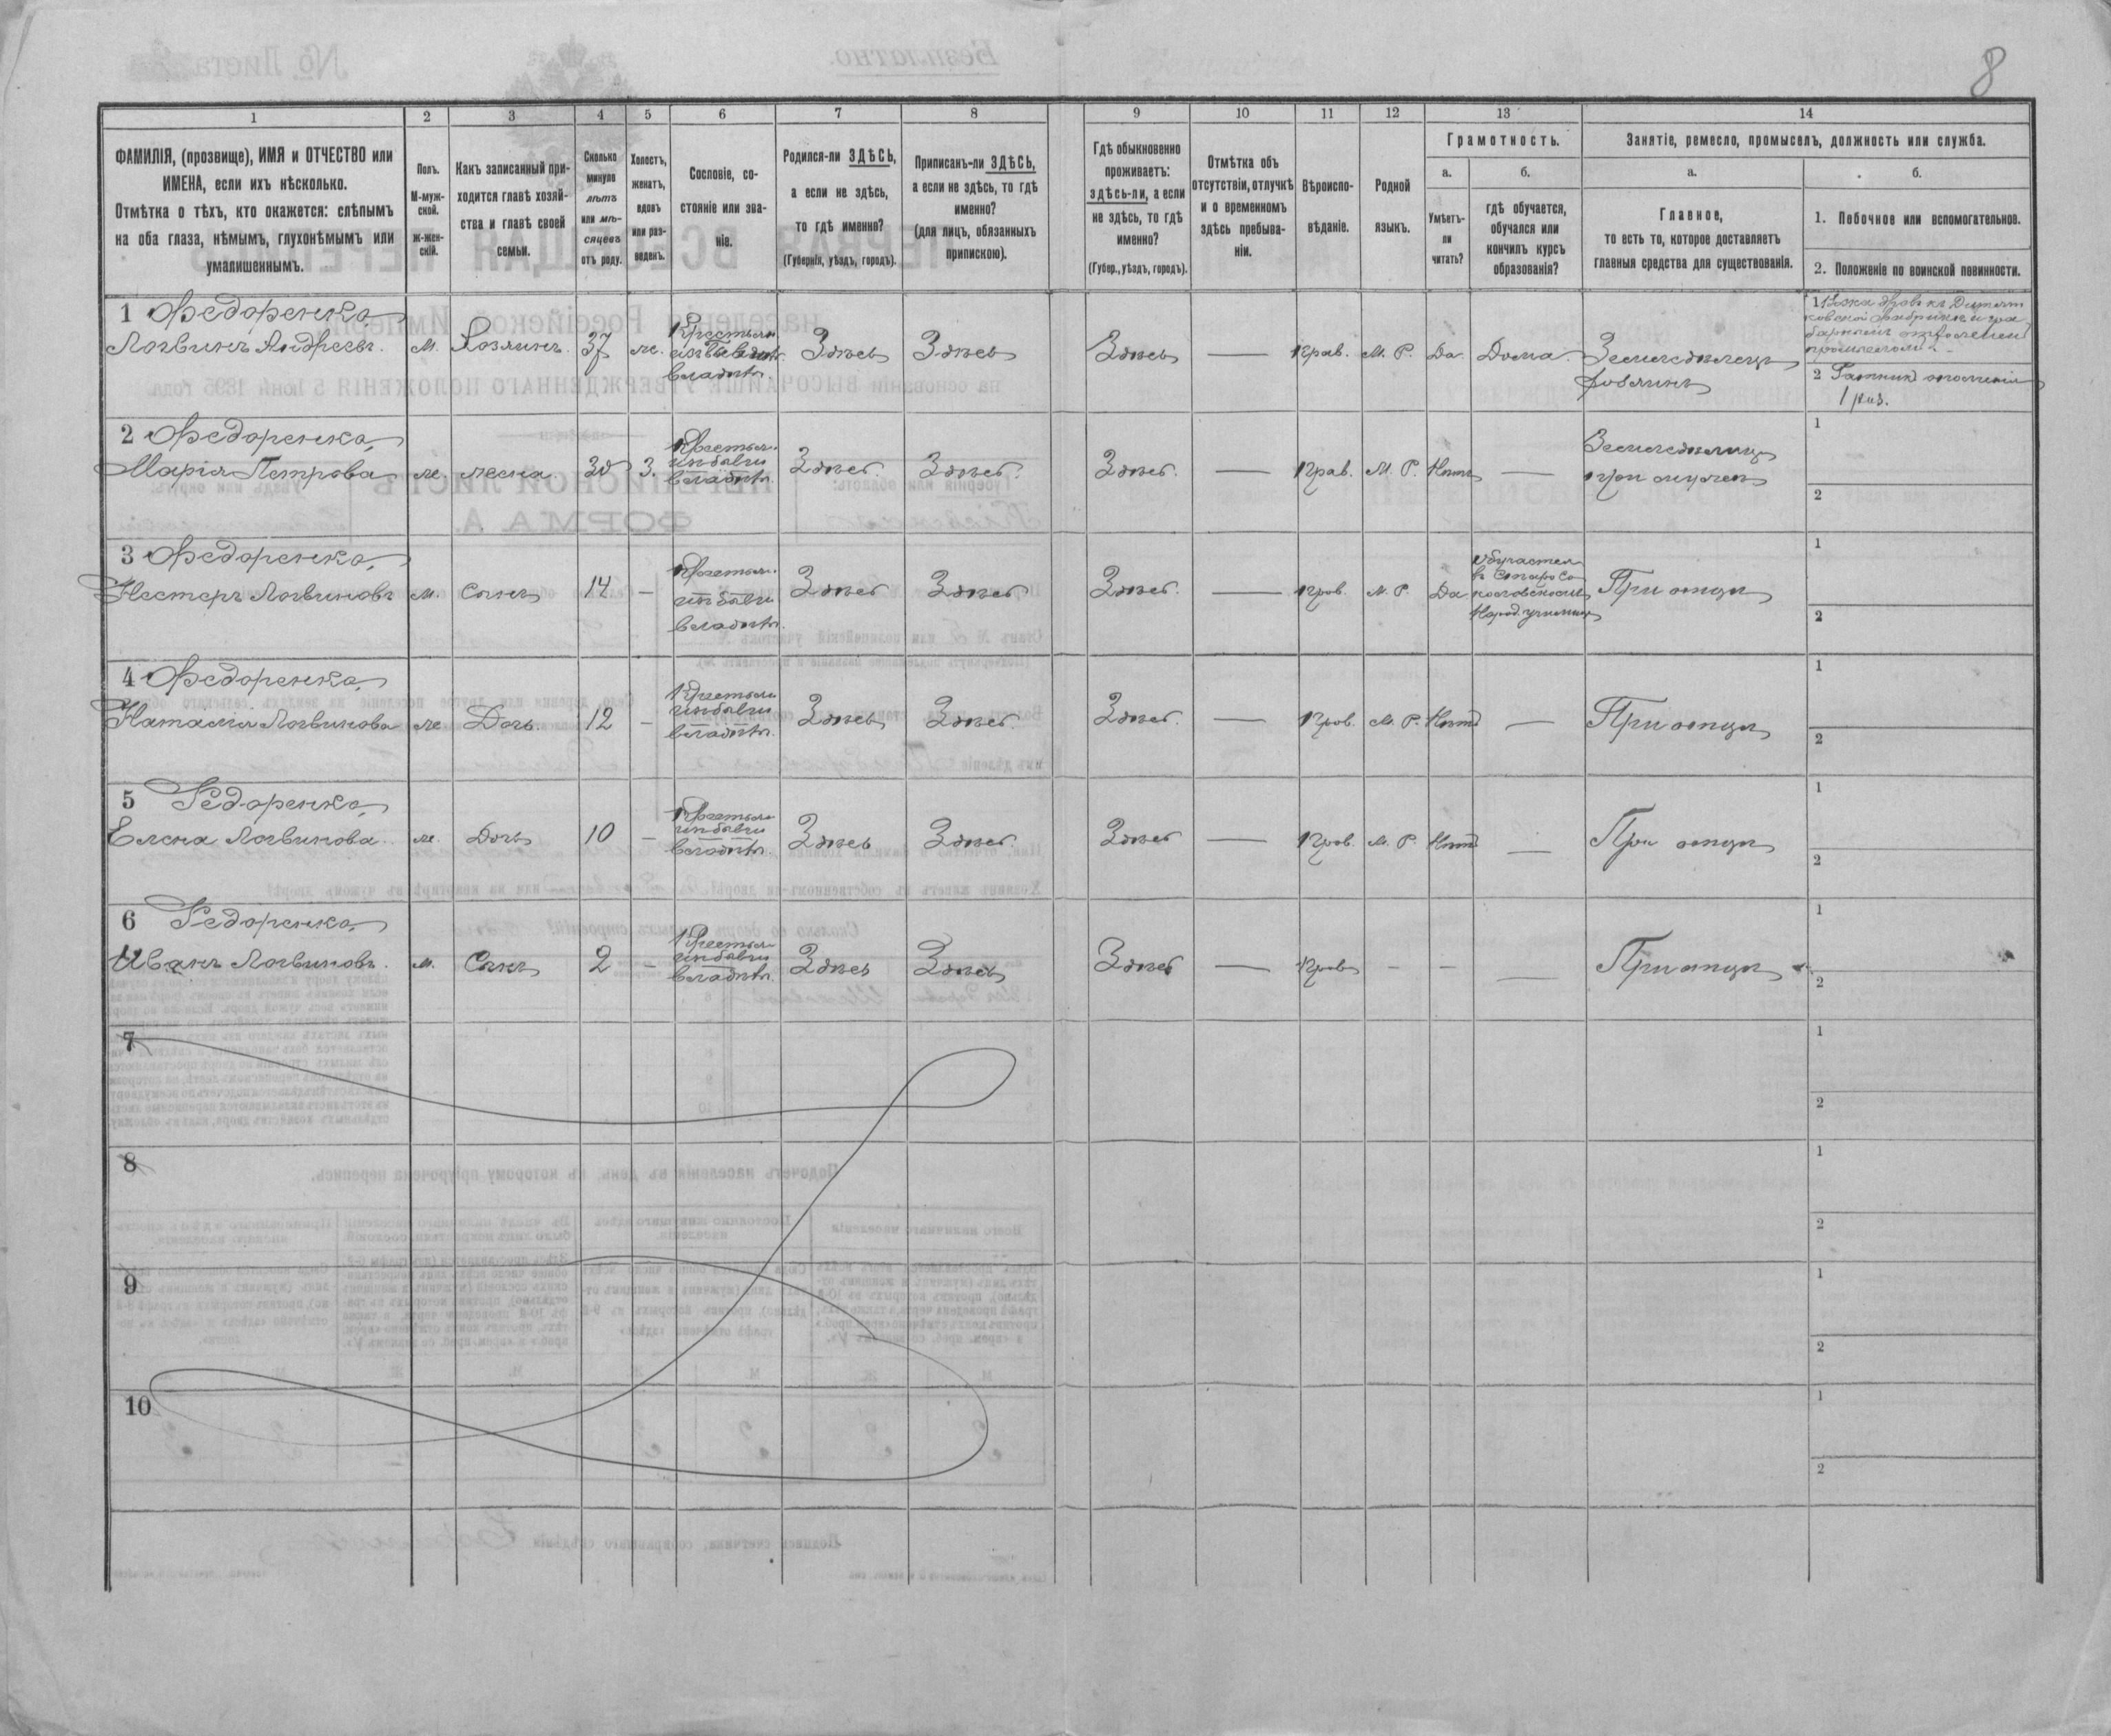 8
1
2
3
4
5
6
7
8
9
10
11
12
13
14
ФАМИЛІЯ, (прозвище), ИМЯ и ОТЧЕСТВО или
ИМЕНА, если ихъ нѣсколько.
Отмѣтка о тѣхъ, кто окажется: слѣпымъ
на оба глаза, нѣмымъ, глухонѣмымъ или
умалишеннымъ.
Полъ.
М-муж-
ской.
ж-жен-
скій.
Какъ записанный при-
ходится главѣ хозяй-
ства и главѣ своей
семьи.
Сколько
минуло
лѣтъ
или мѣ-
сяцевъ
отъ роду.
Холостъ,
женатъ,
вдовъ
или раз-
веденъ.
Сословіе, со-
стояніе или зва-
ніе.
Родился-ли ЗДѢСЬ,
а если не здѣсь,
то гдѣ именно?
(Губернія, уѣздъ, городъ).
Приписанъ-ли ЗДѢСЬ,
а если не здѣсь, то гдѣ
именно?
(для лицъ, обязанныхъ
припискою).
Гдѣ обыкновенно
проживаетъ:
здѣсь-ли, а если
не здѣсь, то гдѣ
именно?
(Губер., уѣздъ, городъ).
Отмѣтка объ
отсутствіи, отлучкѣ
и о временномъ
здѣсь пребыва-
ніи.
Вѣроиспо-
вѣданіе.
Родной
языкъ.
Грамотность.
а.
Умѣетъ-
ли
читать?
б.
гдѣ обучается,
обучался или
кончилъ курсъ
образованія?
Занятіе, ремесло, промыселъ, должность или служба.
а.
Главное,
то есть то, которое доставляетъ
главныя средства для существованія.
б.
1. Побочное или вспомогательное.
2. Положеніе по воинской повинности.
1 Федоренко
Логвинъ Андреевъ.
м.
Хозяинъ.
37
же.
Крестьян.
владѣл.
Здѣсь
Здѣсь
Здѣсь
—
Прав.
М. Р.
Да.
Дома.
Земледѣлецъ
хозяинъ
1
2 Ратникъ ополченія
1 раз.
2 Федоренко
Марія Петрова
же.
жена
30
3.
Крестьян.
владѣл.
Здѣсь.
Здѣсь.
Здѣсь.
—
Прав.
М. Р.
Нѣтъ
—
Земледѣлица
при мужѣ
1
2
3 Федоренко
Нестеръ Логвиновъ
м.
Сынъ
14
—
Крестьян.
владѣл.
Здѣсь
Здѣсь
Здѣсь.
—
Прав.
М. Р.
Да
Обучается
въ
Народ. училищ
При отцѣ
1
2
4 Федоренко
Наталія Логвинова
же
Дочь.
12
—
Крестьян.
владѣл.
Здѣсь
Здѣсь.
Здѣсь.
—
Прав.
М. Р.
Нѣтъ
—
При отцѣ
1
2
5 Федоренко
Елена Логвинова.
же.
Дочь
10
—
Крестьян.
владѣл.
Здѣсь
Здѣсь.
Здѣсь
—
Прав.
М. Р.
Нѣтъ
—
При отцѣ
1
2
6 Федоренко
Иванъ Логвиновъ.
м.
Сынъ
2
—
Крестьян.
владѣл.
Здѣсь
Здѣсь
Здѣсь
—
Прав
-
-
—
При отцѣ
1
2
7
1
2
8
1
2
9
1
2
10
1
2